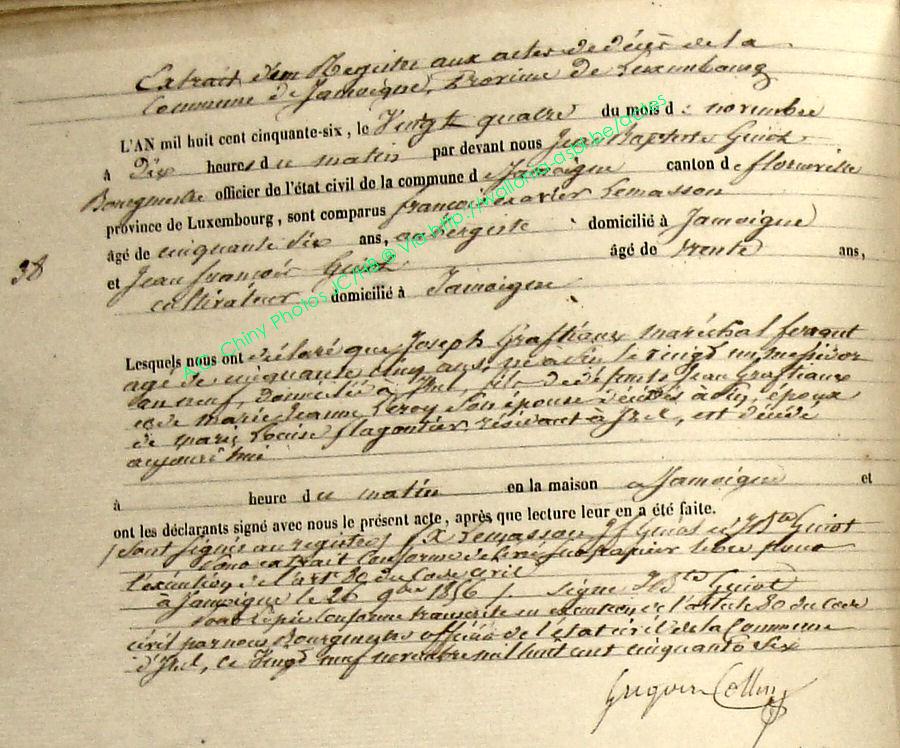 Extrait d'un Registre aux actes de décès de la
Commune de Jamoigne, Province de Luxembourg
L'AN mil huit cent cinquante-six, le Vingt quatre du mois d : novembre
à Dix heures du matin par devant nous Jean Baptiste Guiot
Bourgmestre officier de l'état civil de la commune d e Jamoigne canton de florenville
province de Luxembourg, sont comparus françois xavier Lemasson
âgé de cinquante six ans, aubergiste domicilié à Jamoigne
38
et Jean françois Guiot âgé de trente ans,
cultivateur domicilié à Jamoigne
Lesquels nous ont déclaré que Joseph Graftiaux maréchal ferrant
agé de cinquante cinq ans, né à le vingt un
an neuf, domicilié à Izel, fils de défunts Jean Graftiaux
et de Marie Jeanne Leroy son épouse décédés à époux
de marie Louise flagontier résidant à Izel, est décédé
aujourd'hui
à heure du matin en la maison a Jamoigne et
ont les déclarants signé avec nous le présent acte, après que lecture leur en a été faite.
/ Sont signés au registre / f X Lemasson J f Guiot et J Bte Guiot
Pour extrait Conforme délivré sur papier libre pour
l'exécution de l'art 80 du Code Civil
à Jamoigne le 26 9bre 1856 /. Signé J Bte Guiot
Pour Copie Conforme transcrite en exécution de l'article 80 du Code
civil par nous Bourgmestre officier de l'état civil de la Commune
d'Izel, ce Vingt neuf novembre mil huit cent cinquante six
Collin
AG Chiny Photos JC/HB @ Via http://wallonia-asbl.be/actes